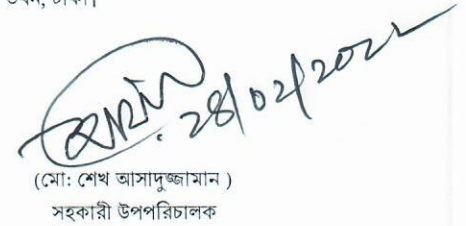 ঢাকা।
28/02/2022
(মো: শেখ আসাদুজ্জামান )
সহকারী উপপরিচালক